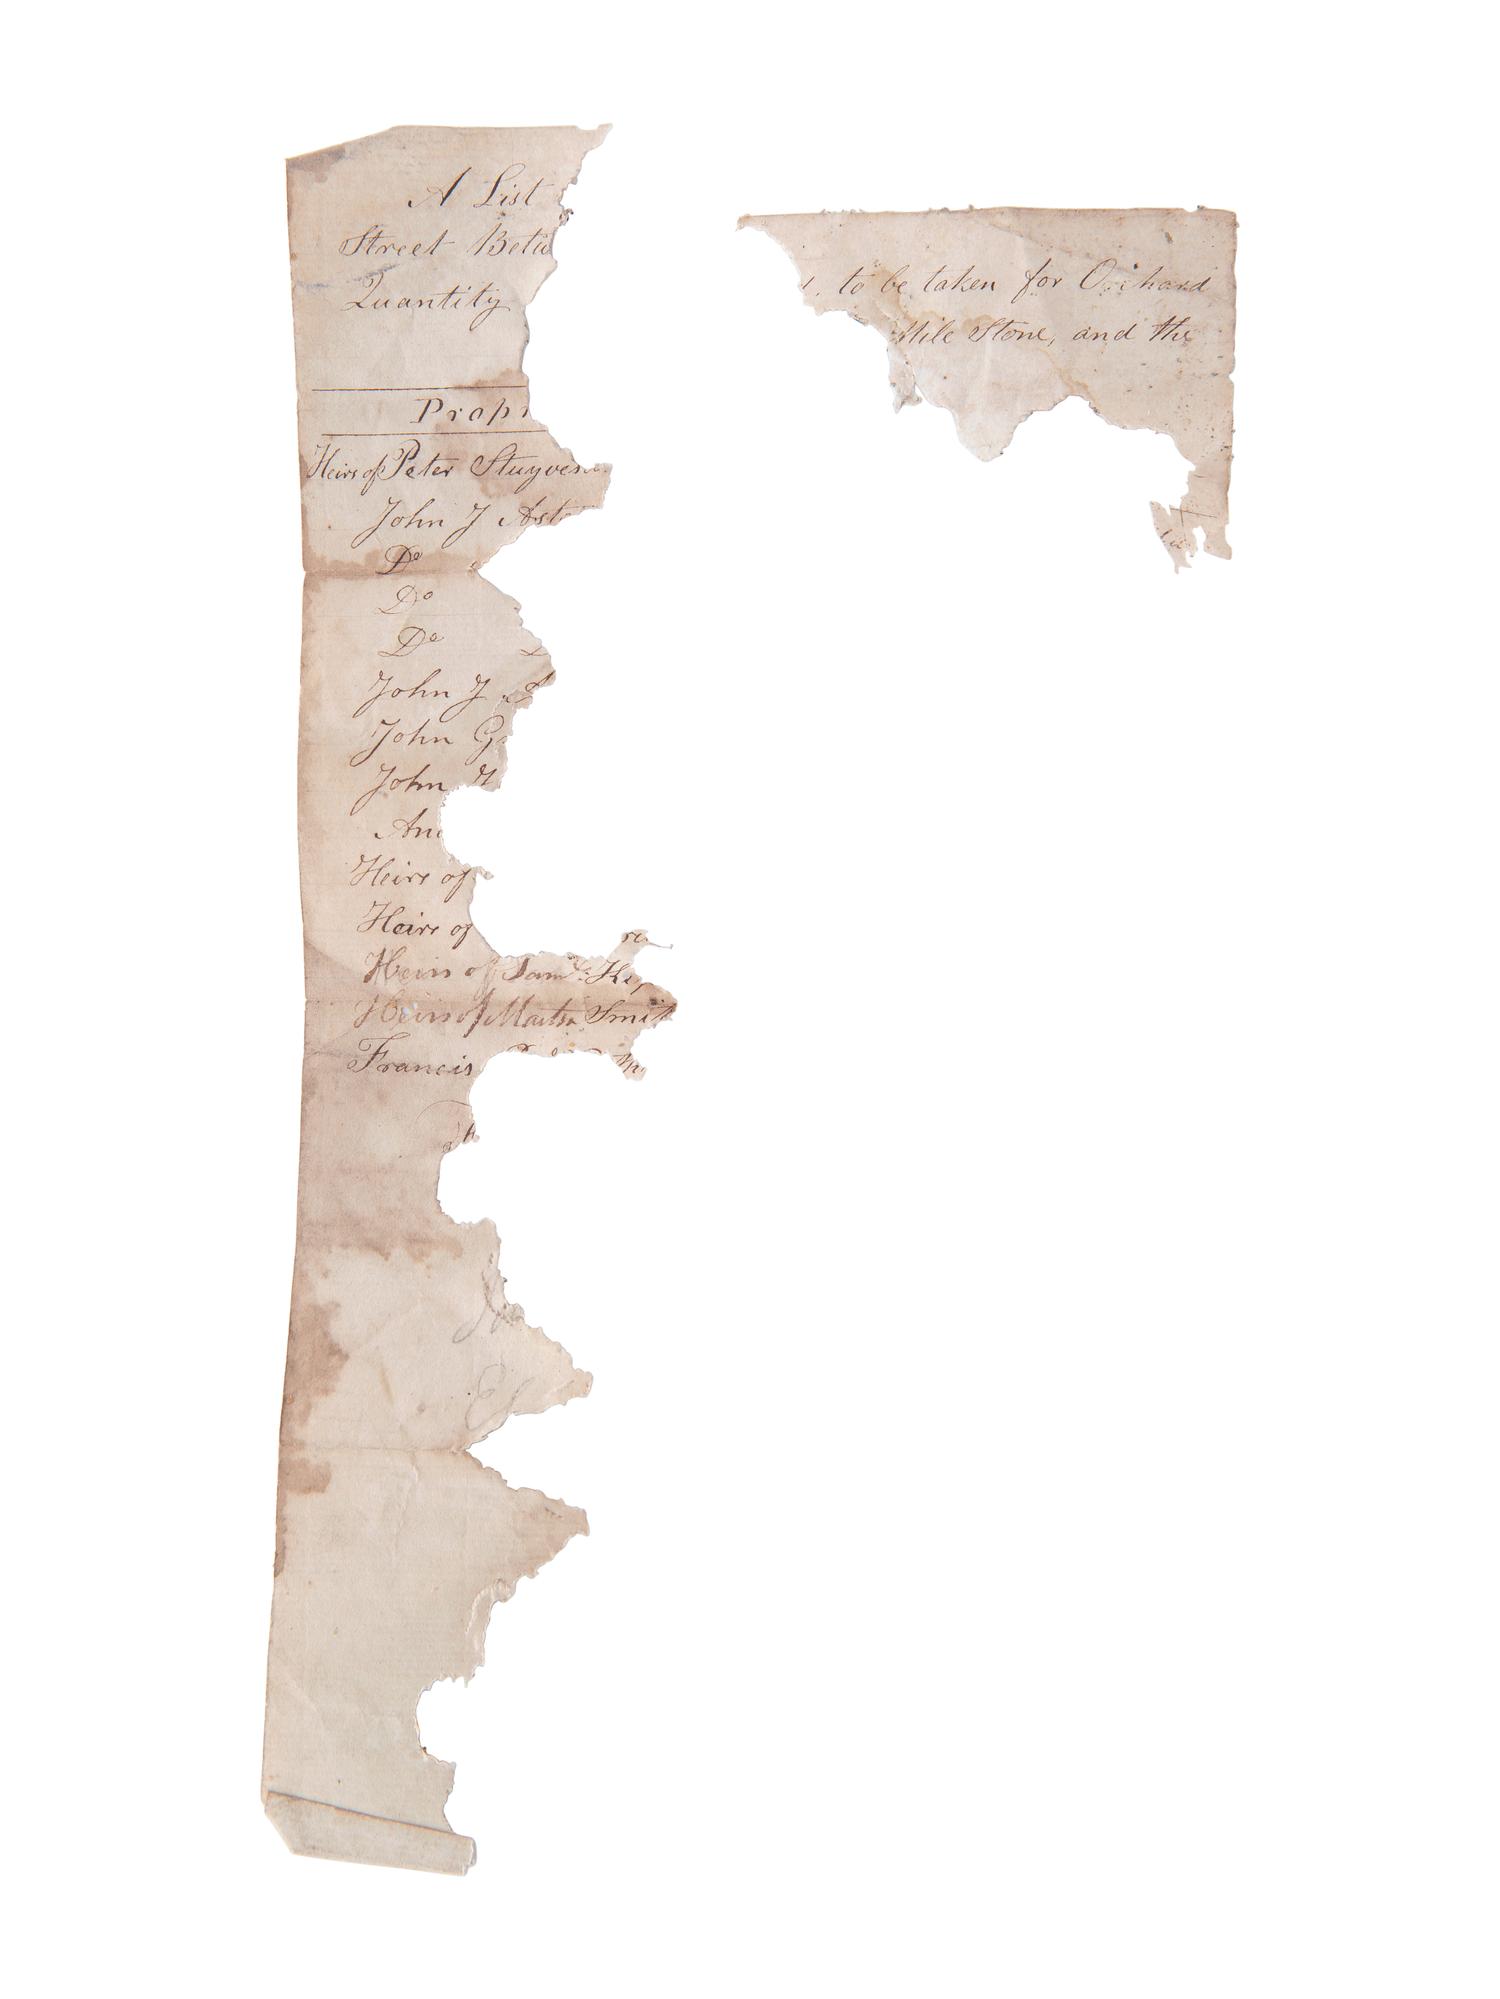 A List
Street Betw
Quantity
Propr
Heirs of Peter Stuyvesa
John J Asto
Do
Do
Do
John J A
John G
John H
An
Heirs of
Heirs of
Heirs of Saml. Kip
Heirs of Martha Smit
Francis
to be taken for Orchard
Mile Stone, and the